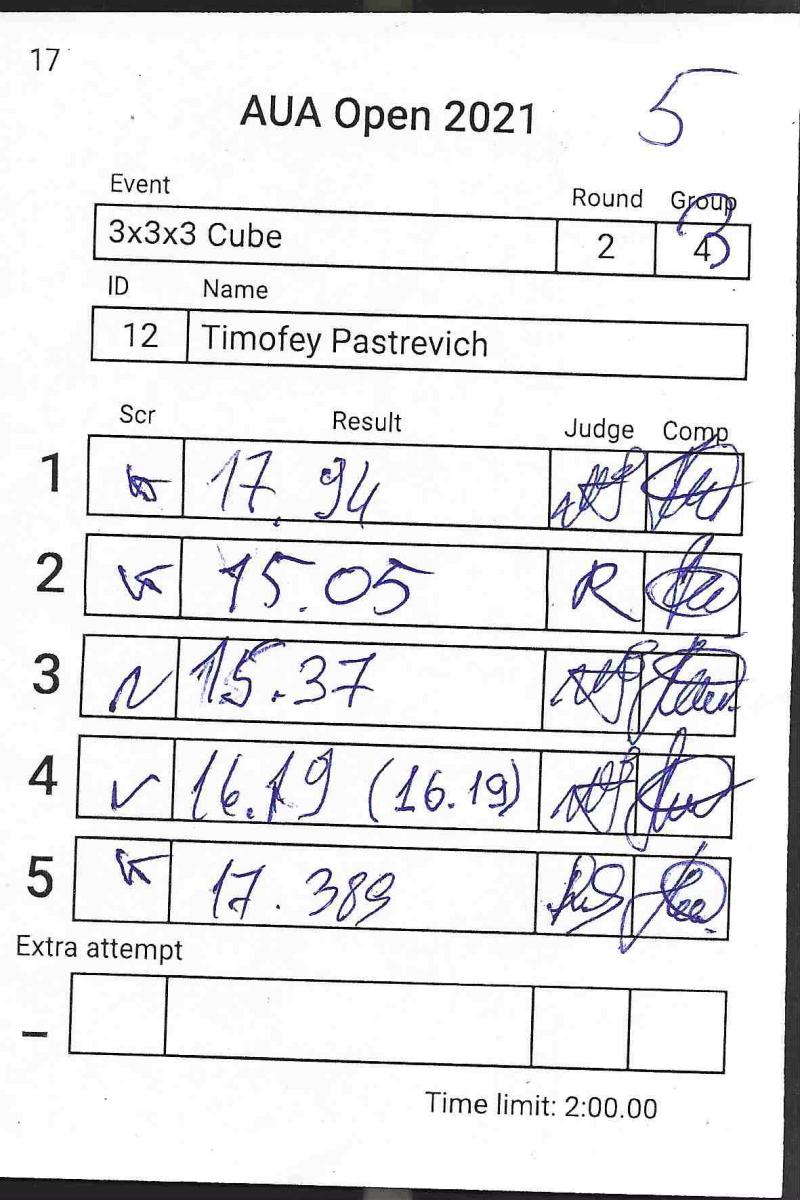 17
AUA Open 2021 5
Event Round Group
3x3x3 Cube 2 4 3
ID Name
12 Timofey Pastrevich
Scr Result Judge Comp
1 17.94
2 15.05 R
3 15.37
4 16.19 (16.19)
5 17.389
Extra attempt
–
Time limit: 2:00.00